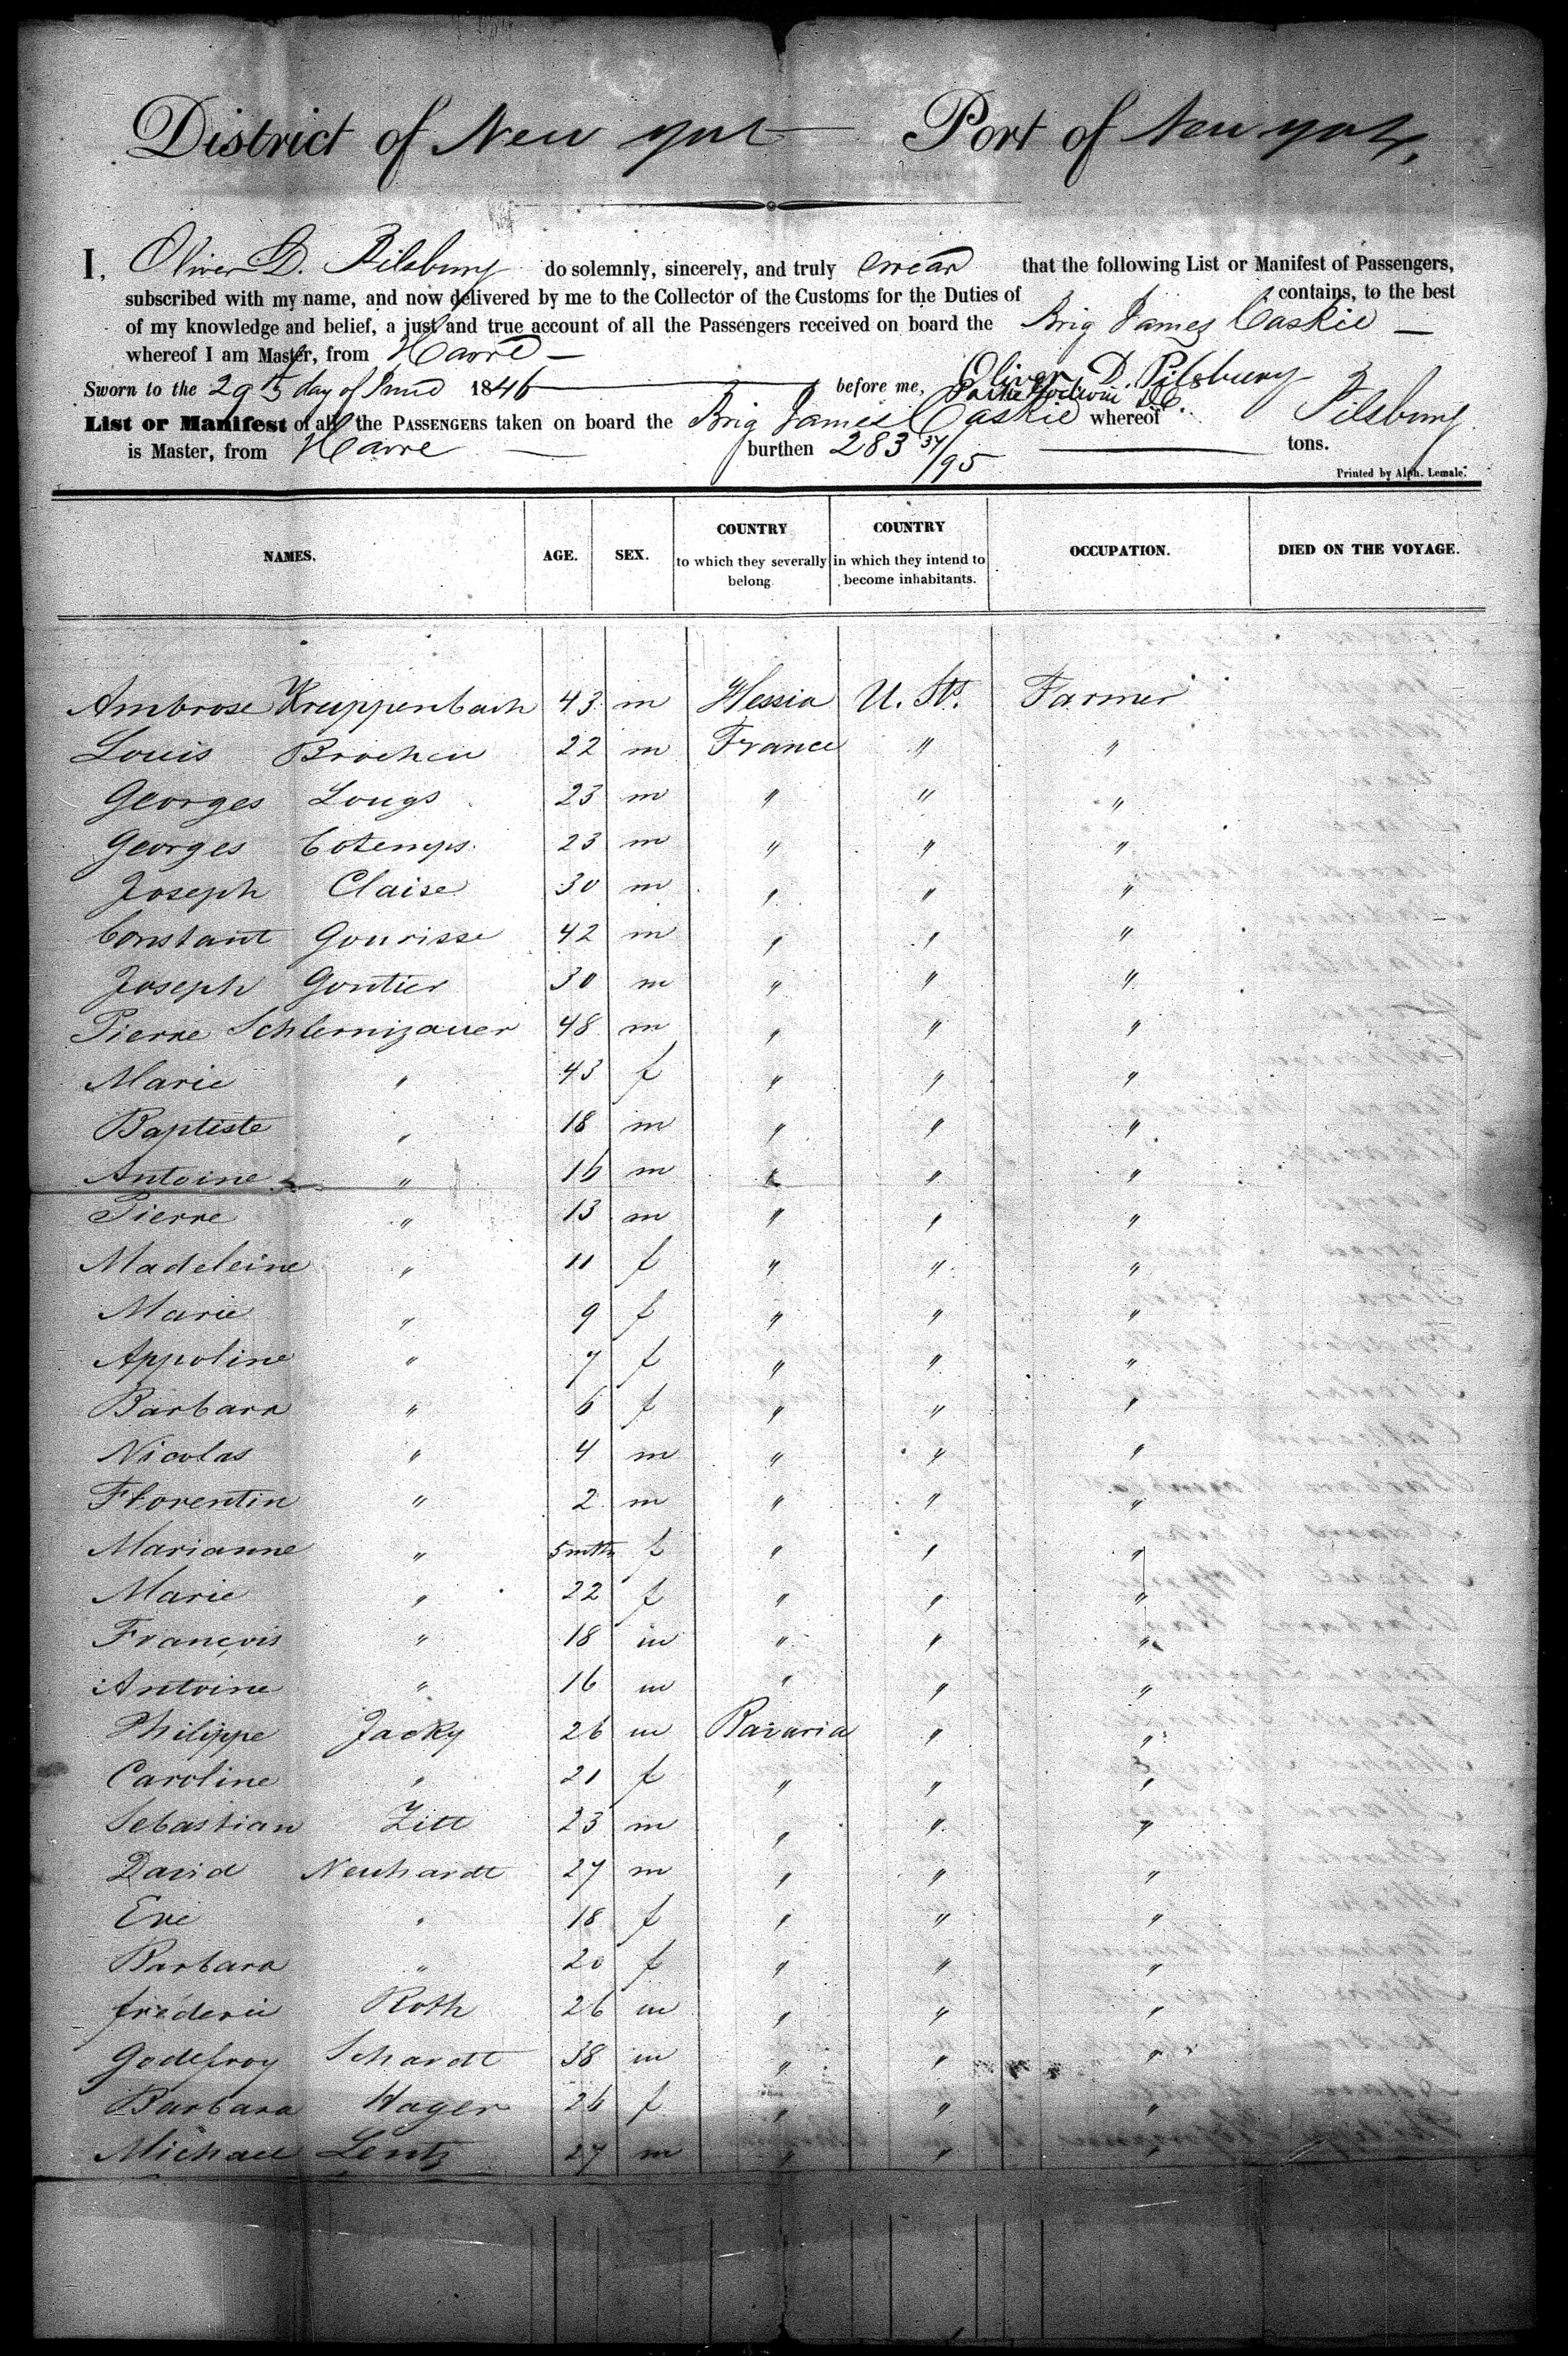 District of New York Port of New York,
I, Oliver D. Pilsbury do solemnly, sincerely, and truly swear that the following List or Manifest of Passengers,
subscribed with my name, and now delivered by me to the Collector of the Customs for the Duties of contains, to the best
of my knowledge and belief, a just and true account of all the Passengers received on board the Brig James Caskie
whereof I am Master, from Havre
Oliver D. Pilsbury
Sworn to the 29th day of June 1846 before me,
List or Manifest of all the PASSENGERS taken on board the Brig James Caskie whereof Pilsbury
is Master, from Havre burthen 283 34/95 tons.
Printed by Alph. Lemale.
NAMES. AGE. SEX. COUNTRY to which they severally belong COUNTRY in which they intend to become inhabitants. OCCUPATION. DIED ON THE VOYAGE.
Ambrose Kruppenbach 43 m Hessia U. Sts. Farmer
Louis Brochin 22 m France " "
Georges Lougs 23 m " " "
Georges Cotemps 23 m " " "
Joseph Claise 30 m " " "
Constant Gourisse 42 m " " "
Joseph Gontier 30 m " " "
Pierre Schlernizauer 48 m " " "
Marie " 43 f " " "
Baptiste " 18 m " " "
Antoine " 16 m " " "
Pierre " 13 m " " "
Madeleine " 11 f " " "
Marie " 9 f " " "
Appoline " 7 f " " "
Barbara " 6 f " " "
Nicolas " 4 m " " "
Florentin " 2 m " " "
Marianne " 5 mths f " " "
Marie " 22 f " " "
François " 18 m " " "
Antoine " 16 m " " "
Philippe Jacky 26 m Bavaria " "
Caroline " 21 f " " "
Sebastian Zitt 23 m " " "
David Neuhardt 27 m " " "
Eve " 18 f " " "
Barbara " 20 f " " "
frederic Roth 26 m " " "
Godefroy Schardt 38 m " " "
Barbara Wager 26 f " " "
Michael Lentz 27 m " " "